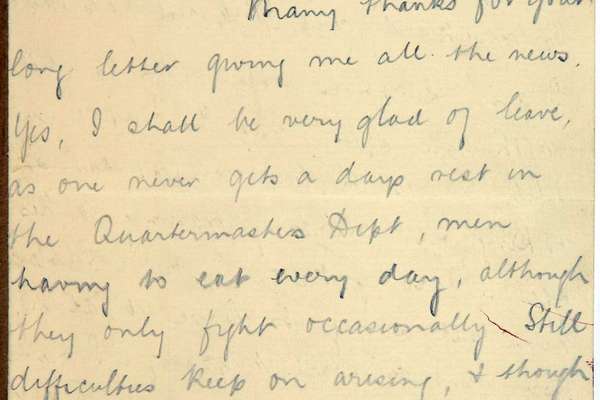 Many thanks for your
long letter giving me all the news.
Yes, I shall be very glad of leave,
as one never gets a days rest in
the Quartermasters Dept, men
having to eat every day, although
they only fight occasionally Still
difficulties keep on arising, & though